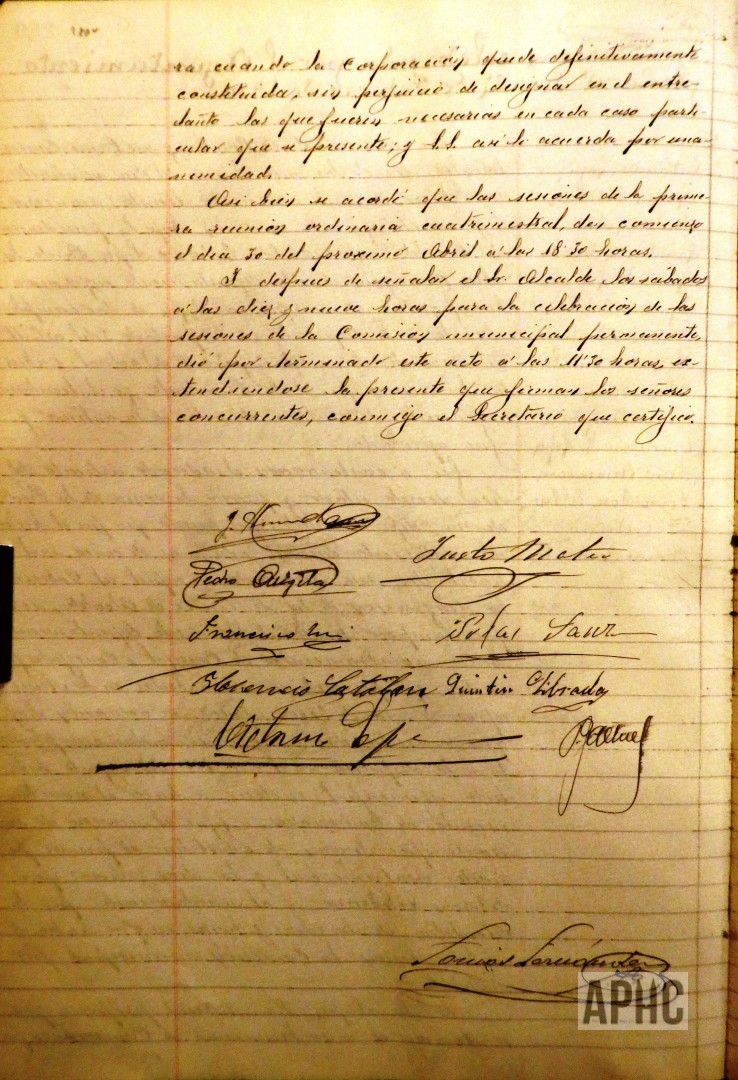 ra cuando la Corporación quede definitivamente
constituida, sin perjuicio de designar en el entre-
tanto las que fueren necesarias en cada caso parti-
cular que se presente; y S.S. así lo acuerda por una-
nimidad.
Así bien se acordó que las sesiones de la prime-
ra reunión ordinaria cuatrimestral, den comienzo
el dia 30 del proximo Abril á las 18'30 horas.
Y despues de señalar el Sr. Alcalde los sábados
á las diez y nueve horas para la celebración de las
sesiones de la Comisión municipal permanente,
dió por terminado este acto á las 11'30 horas, ex-
tendiendose la presente que firman los señores
concurrentes, conmigo el Secretario que certifico.
Justo Mateo
Pedro
Francisco
Sanz
Florencio Catalan Quintin Librado
Fernández
APHC